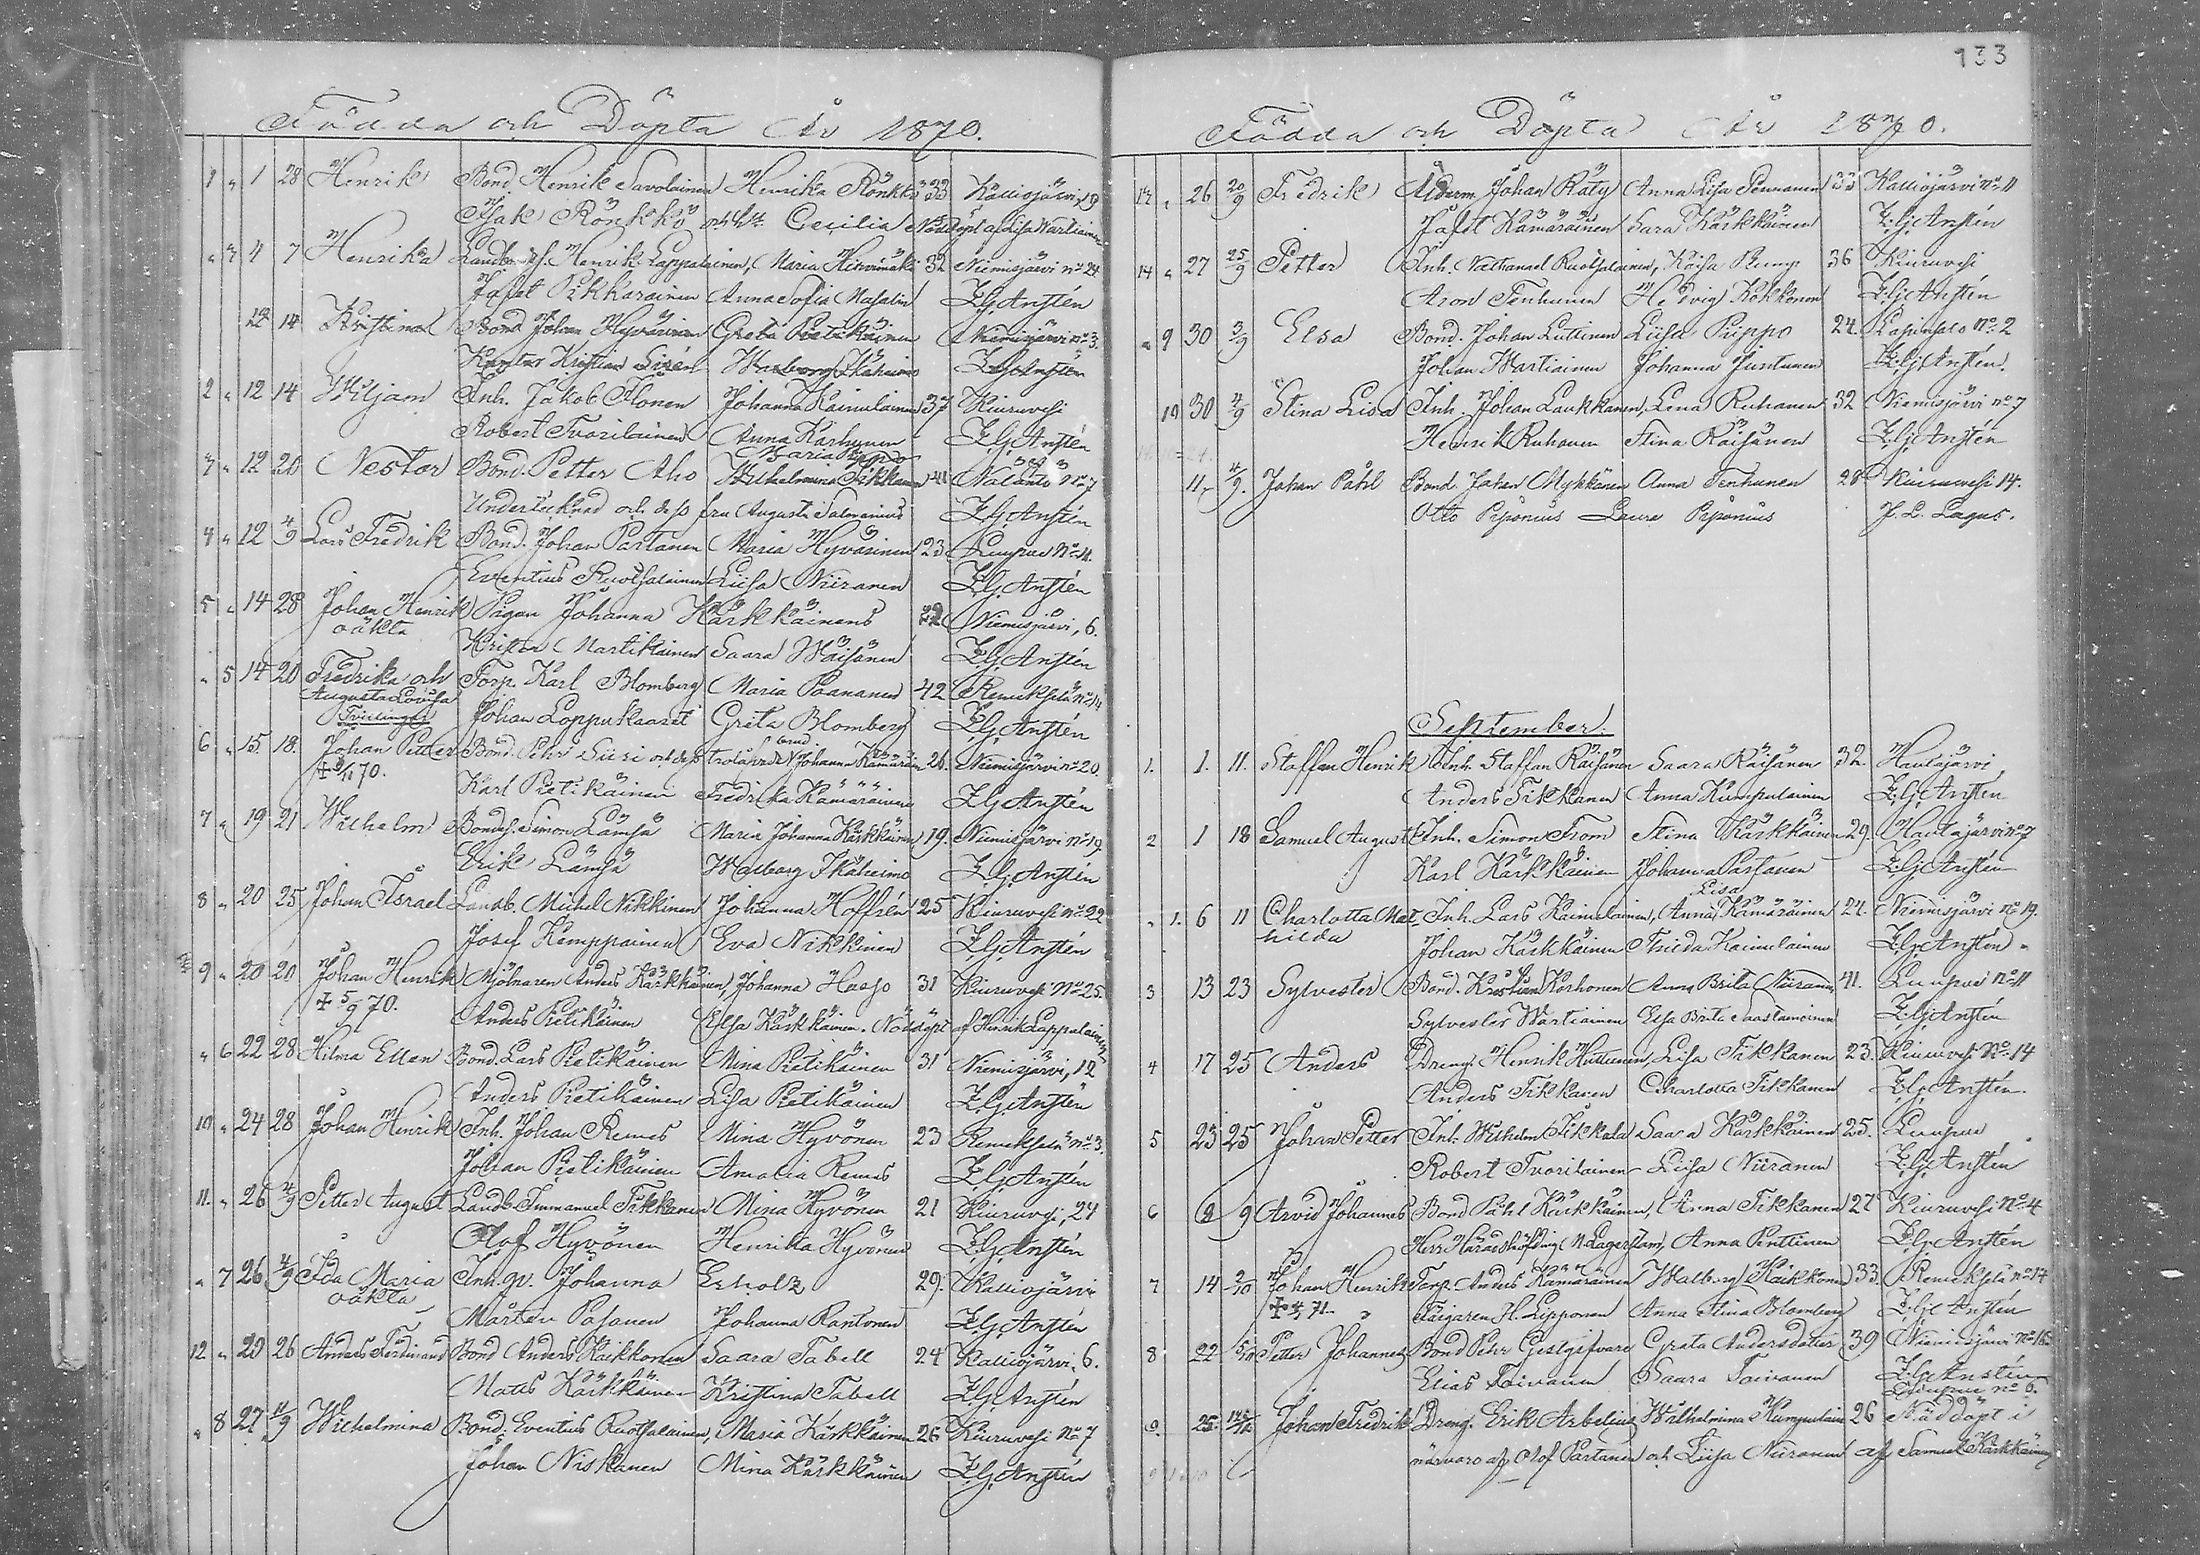 Födda och Döpta År 1870.
1 " 1 28 Henrik Bond. Henrik Savolainen Henrika Rönkkö 33 Kalliojärvi 19
Isak Rönkkö Cecilia Nöddöpt af Lisa Wartiainen
" 3 4 7 Henrika Landb. Henrik Lappalainen, Maria 32 Niemisjärvi no 24
Jafet Pekkarainen Anna Sofia Masalin Z.Gj. Anstén
12 14 Kristina Bond Johan Hyvärinen Greta Pietikäinen Niemisjärvi no 3.
Kantor Kristian Sirén Walborg Ikäheimo Z.Gj. Anstén
2 " 12 14 Wiljam Inh. Jakob Ilonen Johanna Kainulainen 37 Kiuruvesi
Robert Tvorilainen Anna Karhunen Z.Gj. Anstén
Maria Pippo
3 " 12 20 Nestor Bond. Petter Aho Wilhelmina Tikkanen 41 Näläntö No 7
Undertecknad och dess fru Augusta Salmenius Z.Gj. Anstén
4 " 12 4/9 Lars Fredrik Bond. Johan Partanen Maria Hyvärinen 23 Luupue No 11.
Eventius Ruotsalainen Liisa Niiranen Z.Gj. Anstén
5 " 14 28 Johan Henrik Pigan Johanna Kärkkäinens 22 Niemisjärvi, 6.
oäkta Krister Martikainen Saara Wäisänen Z.Gj. Anstén
" 5 14 20 Fredrika och Torp. Karl Blomberg Maria Paananen 42 Remekselä no 14
Augusta Lovisa
Tvillingar Johan Loppukaaret Greta Blomberg Z.Gj. Anstén
6 " 15. 18. Johan Petter Bond. Pehr Siiri och dess trolofvade brud Johanna Kämäräin 26. Niemisjärvi no 20.
+ 3/11 70. Karl Pietikäinen Fredrika Kämäräinen Z.Gj. Anstén
7 " 19 21 Wilhelm Bondes. Simon Lämsä Maria Johanna Kärkkäinen 19. Niemisjärvi no 19
Erik Lämsä Walborg Ikäheimo Z.Gj. Anstén
8 " 20 25 Johan Israel Landb. Michel Nikkinen Johanna Hoffrén 25 Kiuruvesi no 22
Josef Kemppainen Eva Nikkinen Z.Gj. Anstén
9 " 20 20 Johan Henrik Mjölnaren Anders Kärkkäinen, Johanna Haajo 31 Kiuruvesi No 25.
+ 5/9 70. Anders Pietikäinen Elsa Kärkkäinen. Nöddöpt af Henrik Lappalainen
" 6 22 28 Hilma Ellen Bond. Lars Pietikäinen Mina Pietikäinen 31 Niemisjärvi, 12
Anders Pietikäinen Lisa Pietikäinen Z.Gj. Anstén
10 " 24 28 Johan Henrik Inh. Johan Remes Mina Hyvönen 23 Remekselä no 3.
Johan Pietikäinen Amalia Remes Z.Gj. Anstén
11. " 26 4/9 Petter August Landb. Immanuel Tikkanen Mina Hyvönen 21 Kiuruvesi, 24
Olof Hyvönen Henrika Hyvönen Z.Gj. Anstén
" 7 26 4/9 Ida Maria Inh. qv. Johanna Erholtz 29. Kalliojärvi
oäkta Mårten Pasanen Johanna Rantonen Z.Gj. Anstén
12 " 20 26 Anders Ferdinand Bond Anders Kärkkönen Saara Tabell 24 Kalliojärvi, 6.
Mats Kärkkäinen Kristina Tabell Z.Gj. Anstén
" 8 27 11/9 Wilhelmina Bond. Eventius Ruotsalainen, Maria Kärkkäinen 26 Kiuruvesi No 7
Johan Niskanen Mina Kärkkäinen Z.Gj. Anstén
133
Födda och Döpta År 1870.
13 " 26 20/9 Fredrik Ålderm. Johan Räty Anna Lisa Pennanen 33 Kalliojärvi no 11
Jafet Kämäräinen Sara Kärkkäinen Z.Gj. Anstén
14 " 27 25/9 Petter Inh. Nathanael Ruotsalainen, Kaisa Rump 36 Kiuruvesi
Aron Tenhunen Hedvig Kokkonen Z.Gj. Anstén
" 9 30 3/9 Elsa Bond. Johan Luttinen Liisa Pippo 24. Lapinsalo No 2
Johan Wartiainen Johanna Juntunen Z.Gj. Anstén.
10 30 4/9 Stina Lisa Inh. Johan Laukkanen, Lena Ruhanen 32 Niemisjärvi no 7
Henrik Ruhanen Stina Räisänen Z.Gj. Anstén
11 4/9. Johan Påhl Bond. Johan Mykkänen Anna Tenhunen 28 Kiuruvesi 14.
Otto Piponius Laura Piponius J. L. Lagus.
September.
1. 1. 11. Staffan Henrik Inh. Staffan Räisänen Saara Räisänen 32 Hautajärvi
Anders Tikkanen Anna Kumpulainen Z.Gj. Anstén
2 1 18 Samuel August Inh. Simon From Stina Kärkkäinen 29. Hautajärvi no 7
Karl Kärkkäinen Johanna Partanen Z.Gj. Anstén
" 1. 6 11 Charlotta Mat- Inh. Lars Kainulainen, Anna Lisa Kämäräinen 24. Niemisjärvi no 19.
hilda Johan Kärkkäinen Thilda Kainulainen Z.Gj. Anstén
3 13 23 Sylvester Bond. Kristian Korhonen Anna Brita Niiranen 41. Luupue no 11
Sylvester Wartiainen Elsa Brita Saastamoinen Z.Gj. Anstén
4 17 25 Anders Dreng. Henrik Huttunen, Lisa Tikkanen 23. Kiuruvesi No 14
Anders Tikkanen Charlotta Tikkanen Z.Gj. Anstén
5 23 25 Johan Petter Inh. Wilhelm Tikkala Saara Kärkkäinen 25. Luupue
Robert Tvorilainen Liisa Niiranen Z.Gj. Anstén
6 8 9 Arvid Johannes Bond Påhl Kärkkäinen, Anna Tikkanen 27 Kiuruvesi No 4
Herr Häradshöfding N. Lagerstam, Anna Penttinen Z.Gj. Anstén
7 14 2/10 Johan Henrik Torp. Anders Kämäräinen Walborg Kärkkönen 33. Remekselä no 14
+ 4/ 71. Färgaren H. Lipponen Anna Stina Blomberg Z.Gj. Anstén
8 22 5/10 Petter Johannes Bond Pehr Gestgifvare Greta Andersdotter 39 Niemisjärvi no 16
Elias Toivanen Saara Toivanen Z.Gj. Anstén
Luupue no 6.
9. 25 Johan Fredrik Dreng. Erik Arbelius Wilhelmina Kumpulain 26 Nöddöpt i
närvaro af Olof Partanen och Liisa Niiranen af Samuel Kärkkäinen